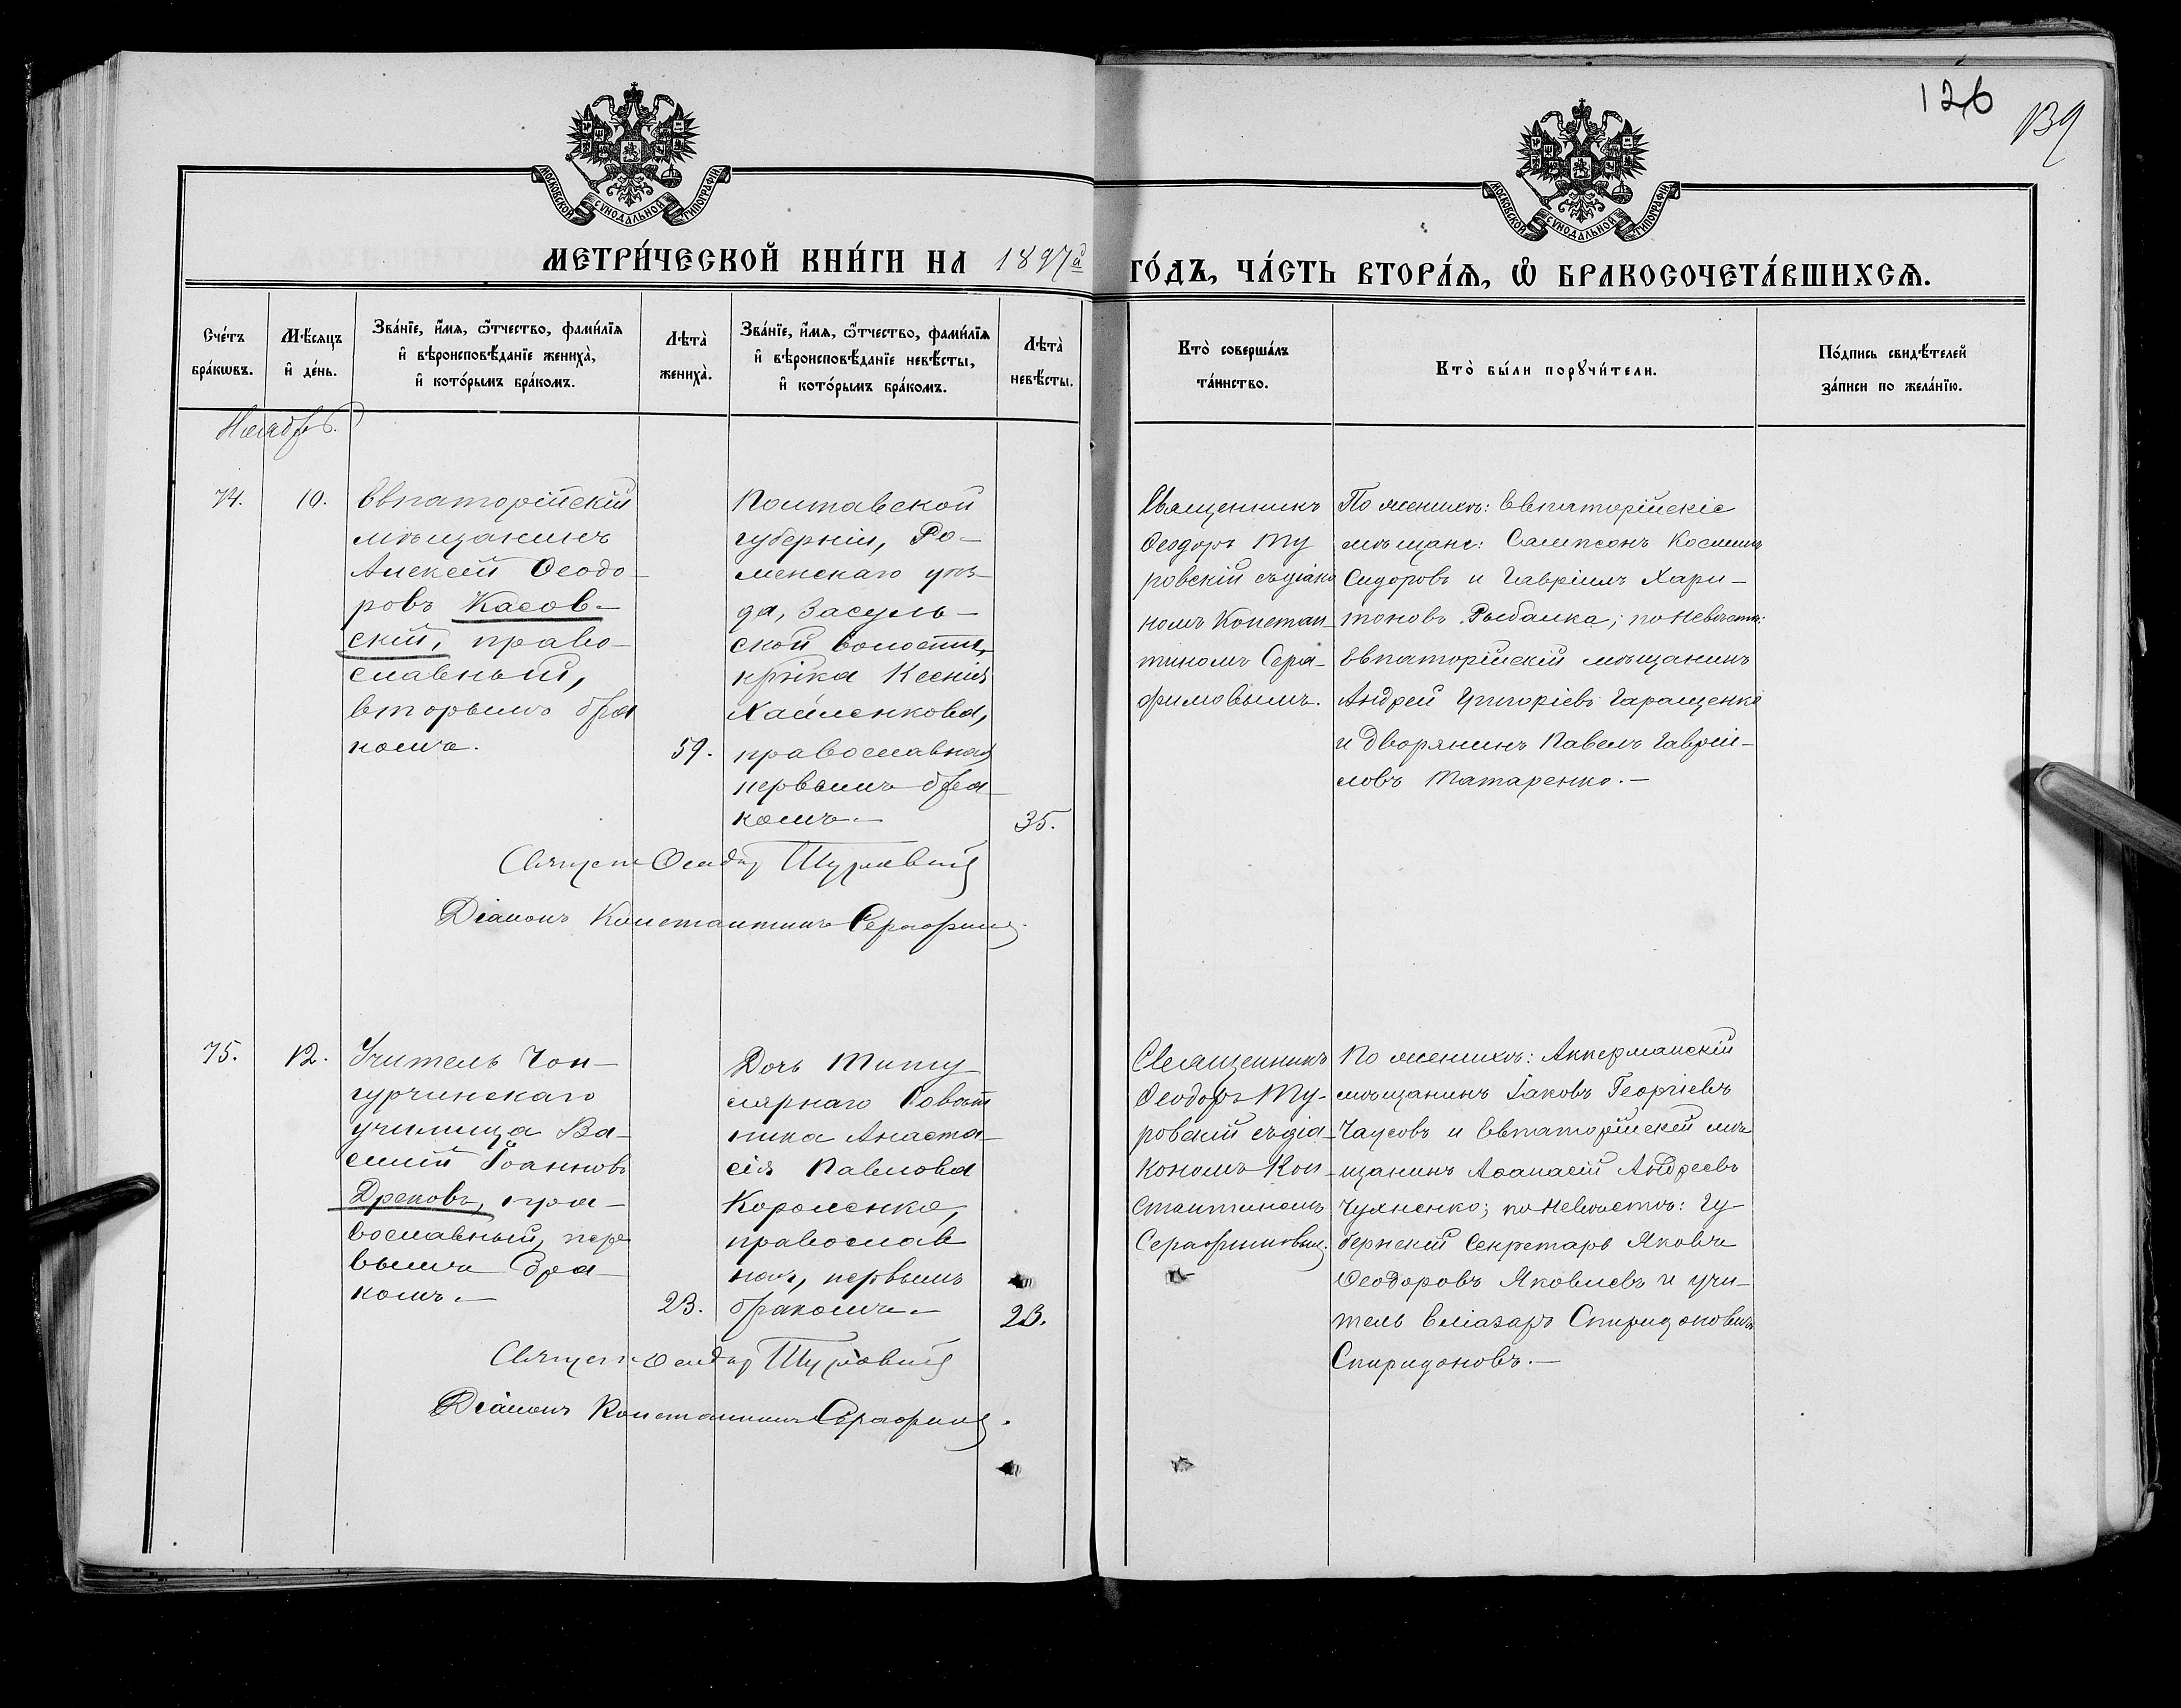 126
139
МОСКОВСКОЙ СѴНОДАЛЬНОЙ ТИПОГРАФІИ
МОСКОВСКОЙ СѴНОДАЛЬНОЙ ТИПОГРАФІИ
МЕТРИ́ЧЕСКОЙ КНИ́ГИ НА 1897й ГО́ДЪ, ЧА́СТЬ ВТОРА́Ѧ, Ѡ҆ БРАКОСОЧЕТА́ВШИХСѦ.
Сче́тъ
бра́кѡвъ.
Мѣ́сяцъ
и҆ де́нь.
Зва́нїе, и҆́мѧ, ѻ҆́тчество, фами́лїѧ
и҆ вѣроисповѣ́данїе жениха̀,
и҆ кото́рымъ бра́комъ.
Лѣта̀
жениха̀.
Зва́нїе, и҆́мѧ, ѻ҆́тчество, фами́лїѧ
и҆ вѣроисповѣ́данїе невѣ́сты,
и҆ кото́рымъ бра́комъ.
Лѣта̀
невѣ́сты.
Кто̀ соверша́лъ
та́инство.
Кто̀ бы́ли порꙋчи́тели.
По́дпись свидѣ́телей
за́писи по жела́нїю.
Ноябрь.
74.
10.
Евпаторійскій
мѣщанинъ
Алексѣй Ѳеодо-
ровъ Касов-
скій, право-
славный,
вторымъ бра
комъ.
59.
Полтавской
губерніи, Ро-
менскаго уѣз-
да, Засуль-
ской волости,
кр-нка Ксенія
Хайленкова,
православная
первымъ бра-
комъ.—
35.
Священникъ
Ѳеодоръ Ту
ровскій съ діако
номъ Констан-
тиномъ Сера-
фимовымъ.
По женихѣ: Евпаторійскіе
мѣщане: Сампсонъ Косминъ
Сидоровъ и Гавріилъ Хари-
тоновъ Рыбалка; по невѣстѣ:
Евпаторійскій мѣщанинъ
Андрей Григоріевъ Гаращенко
и дворянинъ Павелъ Гаврiи-
ловъ Татаренко.—
Священ Ѳеодор Туровскій
Діаконъ Константинъ Серафимов
75.
12.
Учитель Чон-
гурчинскаго
училища Ва-
силій Іоанновъ
Дрековъ, пра-
вославный, пер
вымъ бра-
комъ.—
23.
Дочь Титу
лярнаго Совѣт
ника Анаста-
сія Павлова
Короленко,
православ
ная, первымъ
бракомъ.—
23.
Священникъ
Ѳеодоръ Ту-
ровскій съ діа-
кономъ Кон-
стантиномъ
Серафимовым.
По женихѣ: Аккерманскій
мѣщанинъ Іаковъ Георгіевъ
Чаусовъ и Евпаторійскій мѣ
щанинъ Аѳанасій Андреевъ
Чухненко; по невѣстѣ: Гу-
бернскій Секретарь Яковъ
Ѳеодоровъ Яковлевъ и учи-
тель Еліазаръ Спиридоновъ
Спиридоновъ.—
Священ Ѳеодор Туровскій
Діаконъ Константинъ Серафимов